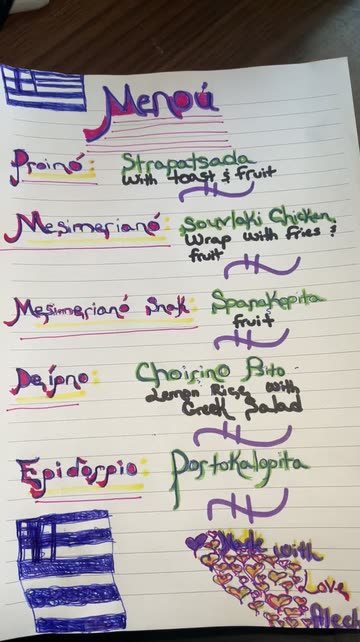 Menoú
Proinó: Strapatsada
with toast & fruit
Mesimerianó: Souvlaki Chicken
Wrap with fries &
fruit
Mesimerianó Snak: Spanakopita
fruit
Deípno: Choirino Psito
Lemon Rise with
Greek Salad
Epidorpio: Portokalopita
Made with
Love
Aleek